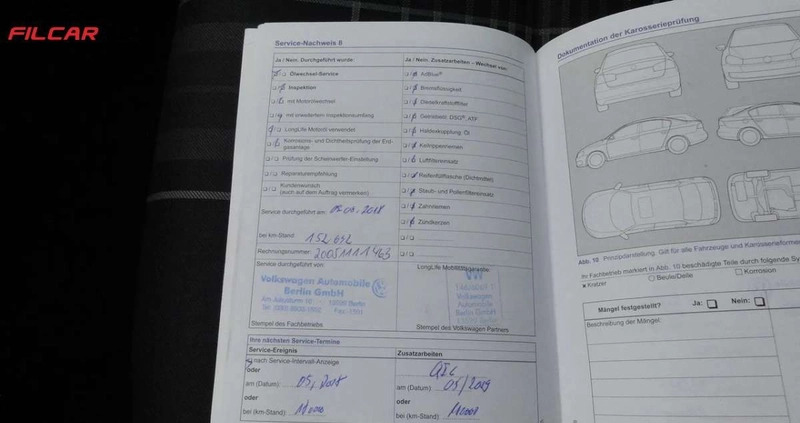 FILCAR
Service-Nachweis II
Ja / Nein. Durchgeführt wurde:
Ölwechsel-Service
Inspektion
mit Motorölwechsel
mit erweitertem Inspektionsumfang
LongLife Motoröl verwendet
Korrosions- und Dichtheitsprüfung der Erd-
gasanlage
Prüfung der Scheinwerfer-Einstellung
Reparaturempfehlung
Kundenwunsch
(auch auf dem Auftrag vermerken)
Service durchgeführt am:
bei km-Stand:
Rechnungsnummer: 20051111463
Service durchgeführt von:
Volkswagen Automobile
Berlin GmbH
Stempel des Fachbetriebs
Ja / Nein. Zusatzarbeiten – Wechsel von:
AdBlue®
Bremsflüssigkeit
Dieselkraftstofffilter
Getriebeöl: DSG®, ATF
Haldexkupplung: Öl
Keilrippenriemen
Luftfiltereinsatz
Reifenfüllflasche (Dichtmittel)
Staub- und Pollenfiltereinsatz
Zahnriemen
Zündkerzen
LongLife Motoröllagerstände:
Volkswagen
Automobile
Berlin GmbH
Stempel des Volkswagen Partners
Ihre nächsten Service-Termine
Service-Ereignis
nach Service-Intervall-Anzeige
oder
am (Datum):
oder
bei (km-Stand):
Zusatzarbeiten
am (Datum): 05/2019
oder
bei (km-Stand):
Dokumentation der Karosserieprüfung
Abb. 10 Prinzipdarstellung. Gilt für alle Fahrzeuge und Karosserieformen
Ihr Fachbetrieb markiert in Abb. 10 beschädigte Teile durch folgende
Kratzer Beule/Delle Korrosion
Mängel festgestellt? Ja: Nein:
Beschreibung der Mängel: